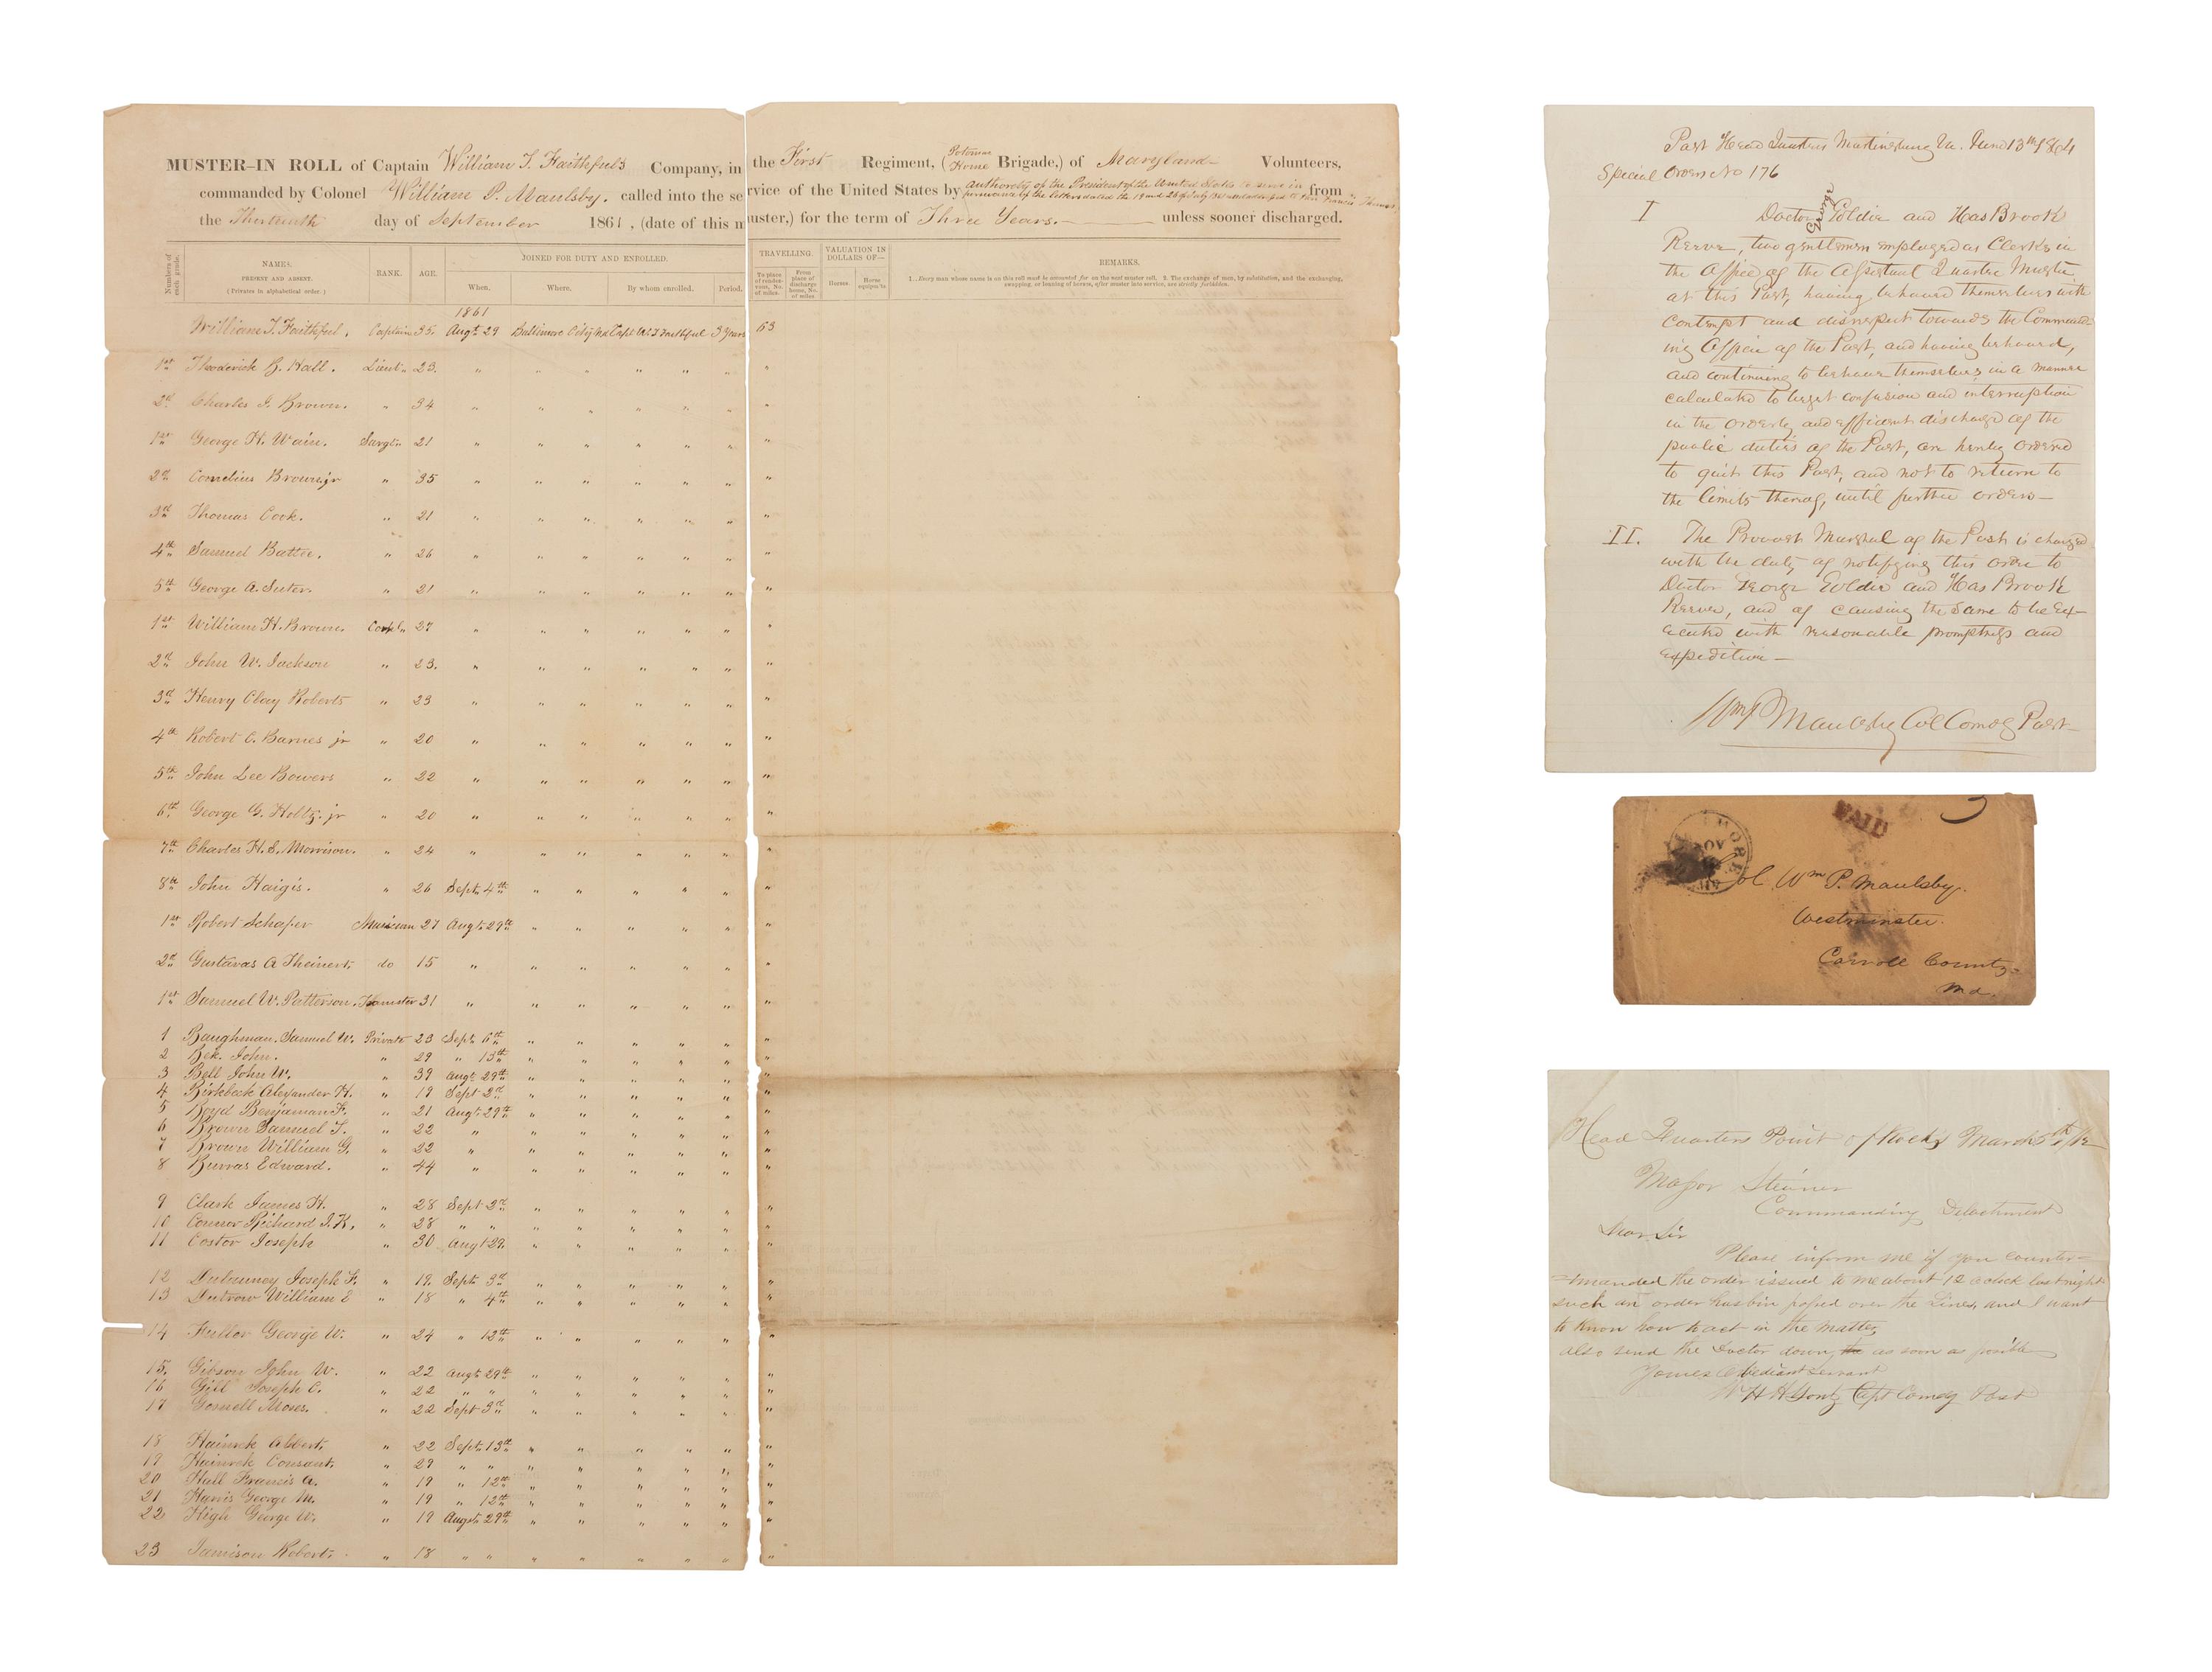 MUSTER-IN ROLL of Captain William T. Faithful's Company, in the First Regiment, (Potomac Home Brigade,) of Maryland Volunteers,
commanded by Colonel William P. Maulsby. called into the service of the United States by authority of the President of the United States from
the Thirteenth day of September 1861, (date of this muster,) for the term of Three Years. unless sooner discharged.
Numbers of each grade.
NAMES. PRESENT AND ABSENT. (Privates in alphabetical order.)
RANK.
AGE.
JOINED FOR DUTY AND ENROLLED.
When. Where. By whom enrolled. Period.
TRAVELLING.
To place of rendezvous, No. of miles. From place of discharge home, No. of miles
VALUATION IN DOLLARS OF—
Horses. Horse equipments
REMARKS.
1. Every man whose name is on this roll must be accounted for on the next muster roll. 2. The exchange of men, by substitution, and the exchanging, swapping, or loaning of horses, after muster into service, are strictly forbidden.
1861
William T. Faithful. Captain 35. Augt. 29 Baltimore City Md Capt W. T. Faithful 3 Years 63
1st Lieut. 23. " " " " " " "
2d Charles J. Brown. " 34 " " " " " " "
1st George H. Wain. Sergt. 21 " " " " " " "
2d Cornelius Brown jr " 35 " " " " " " "
3d Thomas Cook. " 21 " " " " " " "
4th Samuel Battee. " 26 " " " " " " "
5th George A. Suter. " 21 " " " " " " "
1st William H. Brown. Corpl. 27 " " " " " " "
2d John W. Jackson " 23. " " " " " " "
3d Henry Clay Roberts " 23 " " " " " " "
4th Robert C. Barnes jr " 20 " " " " " " "
5th John Lee Bowers " 22 " " " " " " "
6th George G. Holtz. jr " 20 " " " " " " "
7th Charles H. S. Morrison. " 24 " " " " " " "
8th John Haigis. " 26 Sept. 4th " " " " " "
1st Robert Schafer Musician 27 Augt. 29th " " " " " "
2d Gustavas A Theinert. do 15 " " " " " " "
1st Samuel W. Patterson. 31 " " " " " " "
1 Baughman. Samuel W. Private 23 Sept. 6th " " " " " "
2 Bek. John. " 29 " 13th " " " " " "
3 Bell John W. " 39 Augt. 29th " " " " " "
4 Birkbeck Alexander H. " 19 Sept 2d " " " " " "
5 Boyd Benjaman F. " 21 Augt. 29th " " " " " "
6 Brown Samuel T. " 22 " " " " " " "
7 Brown William G. " 22 " " " " " " "
8 Burras Edward. " 44 " " " " " " "
9 Clark James H. " 28 Sept 2d " " " " " "
10 Connor Richard J. K. " 28 " " " " " " " "
11 Costor Joseph " 30 Augt 29. " " " " " "
12 Joseph F. " 19. Sept. 3d " " " " " "
13 Dutrow William E " 18 " 4th " " " " " "
14 Fuller George W. " 24 " 12th " " " " " "
15. Gibson John W. " 22 Augt 29th " " " " " "
16 Gill Joseph C. " 22 " " " " " " " "
17 Gosnell Moses. " 22 Sept 3d " " " " " "
18 Albert. " 22 Sept. 13th " " " " " "
19 " 29 " " " " " " " "
20 Hull Francis A. " 19 " 12th " " " " " "
21 Harris George M. " 19 " 12th " " " " " "
22 High George W. " 19 Augt. 29th " " " " " "
23 Jamison Robert. " 18 " " " " " " " "
Post Head Quarters Martinsburg Va. June 13th 1864
Special Orders No 176
I Doctor George Goldie and Has Brook
Reeve, two gentlemen employed as Clerks in
the Office of the Assistant Quarter Master
at this Post, having behaved themselves with
contempt and disrespect towards the Command
ing Officer of the Post, and having behaved,
and continuing to behave themselves in a manner
calculated to beget confusion and interruption
in the orderly and efficient discharge of the
public duties of the Post, are hereby ordered
to quit this Post, and not to return to
the limits thereof, until further orders—
II. The Provost Marshal of the Post is charged
with the duty of notifying this order to
Doctor George Goldie and Has Brook
Reeve, and of causing the same to be Ex-
ecuted with reasonable promptness and
expedition—
Wm P Maulsby Col Comdg Post
PAID
3
NOV
Col. Wm P. Maulsby.
Westminster.
Carroll County.
Md.
Head Quarters Point of Rocks March 5th /62
Major Steiner
Commanding Detachment
Dear Sir
Please inform me if you counter=
=manded the order issued to me about 12 oclock last night
such an order has bin passed over the Lines, and I want
to know how to act in the matter,
also send the Doctor down as soon as posible
Yours Obediant Servant
W H H Gontz Cpt Comdg Post